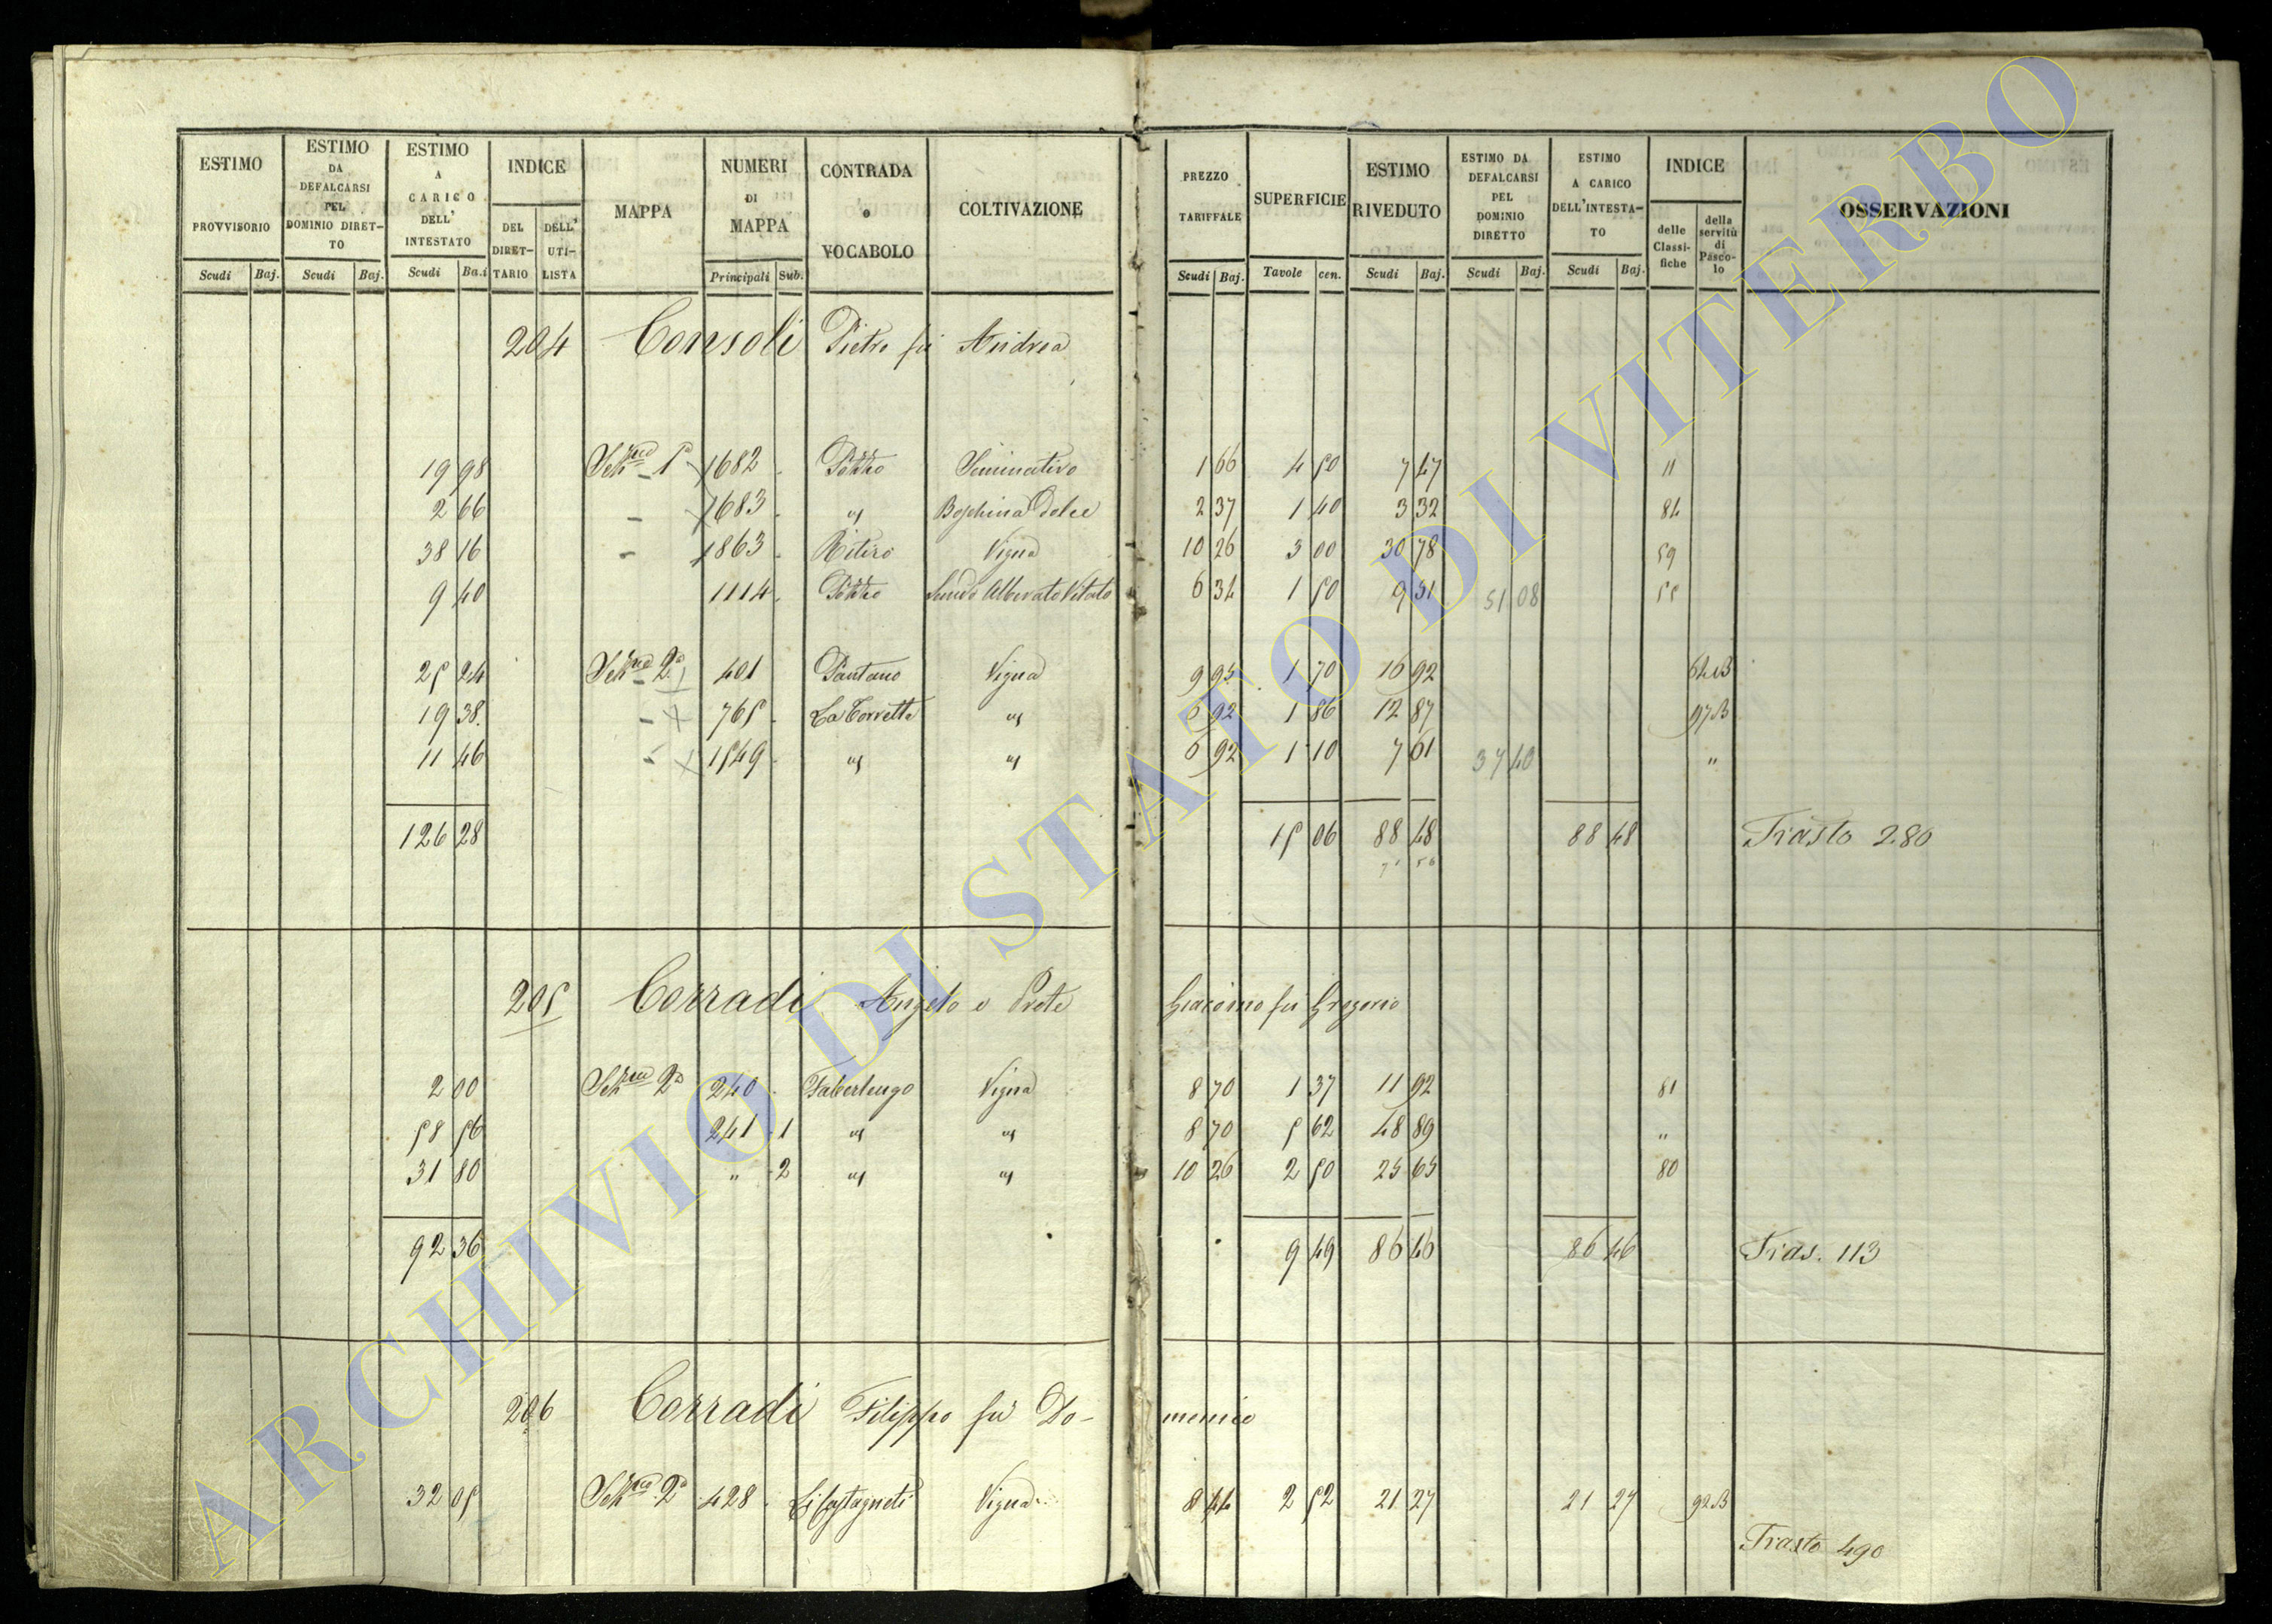 ESTIMO PROVVISORIO Scudi Baj.
ESTIMO DA DEFALCARSI PEL DOMINIO DIRETTO Scudi Baj.
ESTIMO A CARICO DELL' INTESTATO Scudi Ba.i
INDICE DEL DIRETTARIO DELL' UTILISTA
MAPPA
NUMERI DI MAPPA Principali Sub.
CONTRADA o VOCABOLO
COLTIVAZIONE
PREZZO TARIFFALE Scudi Baj.
SUPERFICIE Tavole cen.
ESTIMO RIVEDUTO Scudi Baj.
ESTIMO DA DEFALCARSI PEL DOMINIO DIRETTO Scudi Baj.
ESTIMO A CARICO DELL'INTESTATO Scudi Baj.
INDICE delle Classifiche della servitù di Pascolo
OSSERVAZIONI
204 Consoli Pietro fù Andrea
19 98 1682 Pozzo Seminativo 1 66 4 50 7 47 11
2 66 1683 " Boschina Dolce 2 37 1 40 3 32 84
38 16 1863 Ritiro Vigna 10 26 3 00 30 78 59
9 40 1114 Pozzo Alberato Vitato 6 34 1 50 9 51 51 08 55
25 24 2a 401 Pantano Vigna 9 95 1 70 16 92 64B
19 38 765 La Torretta " 6 92 1 86 12 87 97B
11 46 1549 " " 6 92 1 10 7 61 37 40 "
126 28 15 06 88 48 88 48 Trasto 280
205 Corradi Angelo e Prete Giacomo fù Gregorio
2 00 2a 240 Faberlengo Vigna 8 70 1 37 11 92 81
58 56 241 1 " " 8 70 5 62 48 89 "
31 80 " 2 " " 10 26 2 50 25 65 80
92 36 9 49 86 46 86 46 Tras. 113
206 Corradi Filippo fù Domenico
32 05 2a 428 Li Castagneti Vigna 8 44 2 52 21 27 21 27 92B
Trasto 490
ARCHIVIO DI STATO DI VITERBO